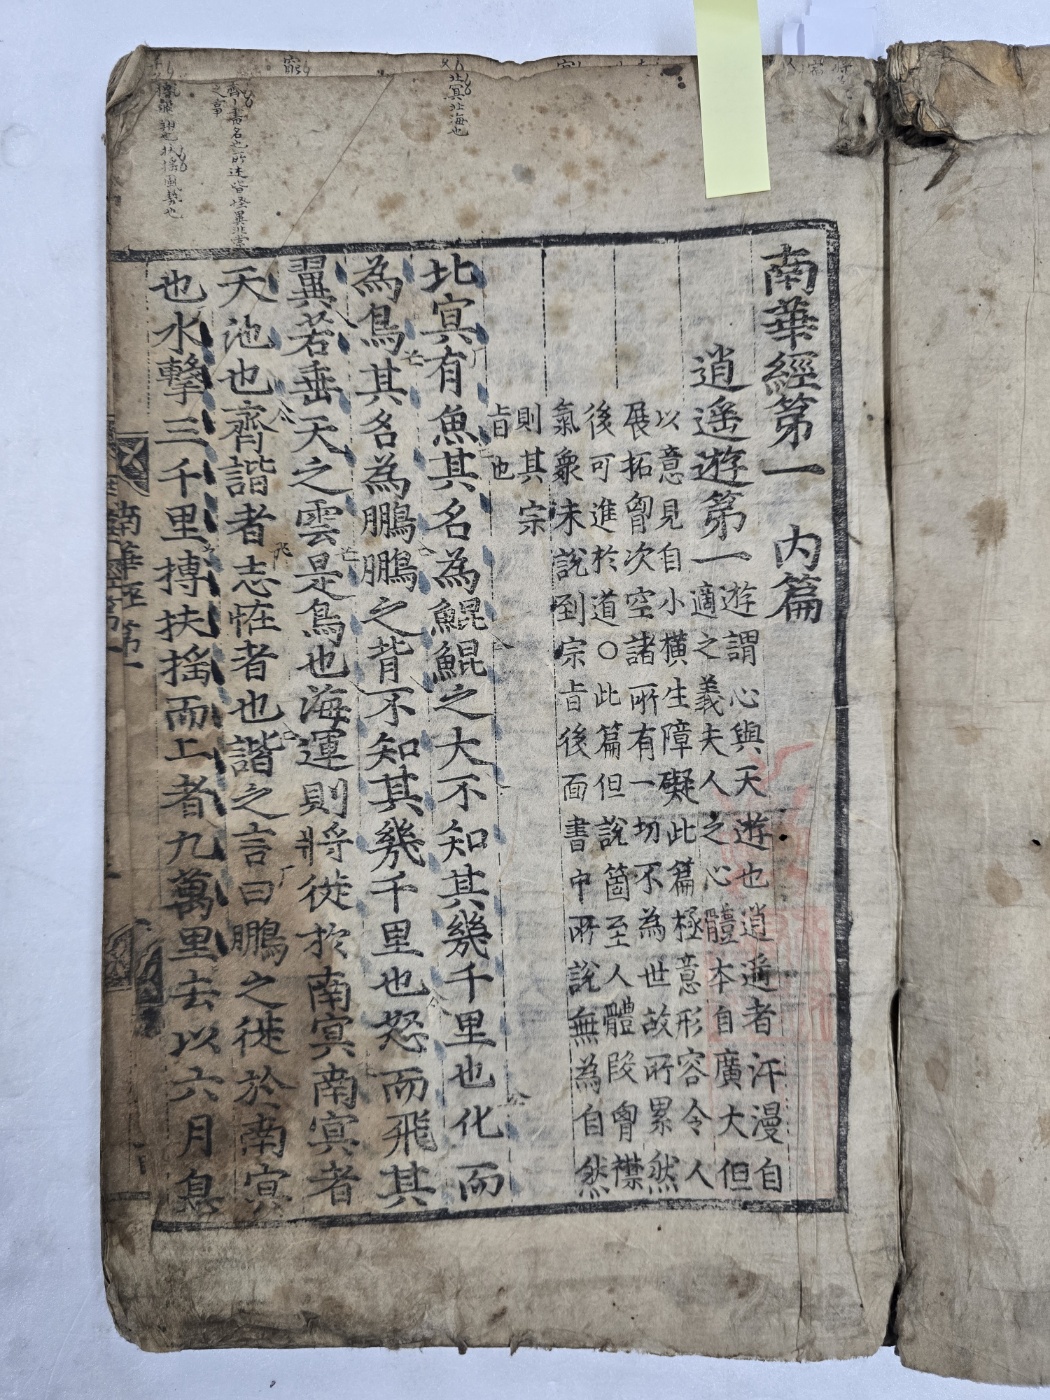 南華經第一　内篇
逍遥遊第一
遊謂心與天遊也逍遥者汗漫自
適之義夫人之心體本自廣大但
以意見自小橫生障礙此篇極意形容令人
展拓胷次空諸所有一切不為世故所累然
後可進於道○此篇但說箇至人體段胷襟
氣象未說到宗旨後面書中所說無為自然
則其宗
旨也
北㝠有魚其名為鯤鯤之大不知其幾千里也化而
為鳥其名為鵬鵬之背不知其幾千里也怒而飛其
翼若垂天之雲是鳥也海運則將徙於南㝠南㝠者
天池也齊諧者志恠者也諧之言曰鵬之徙於南㝠
也水擊三千里摶扶揺而上者九萬里去以六月息
南華經第一
北㝠北海也